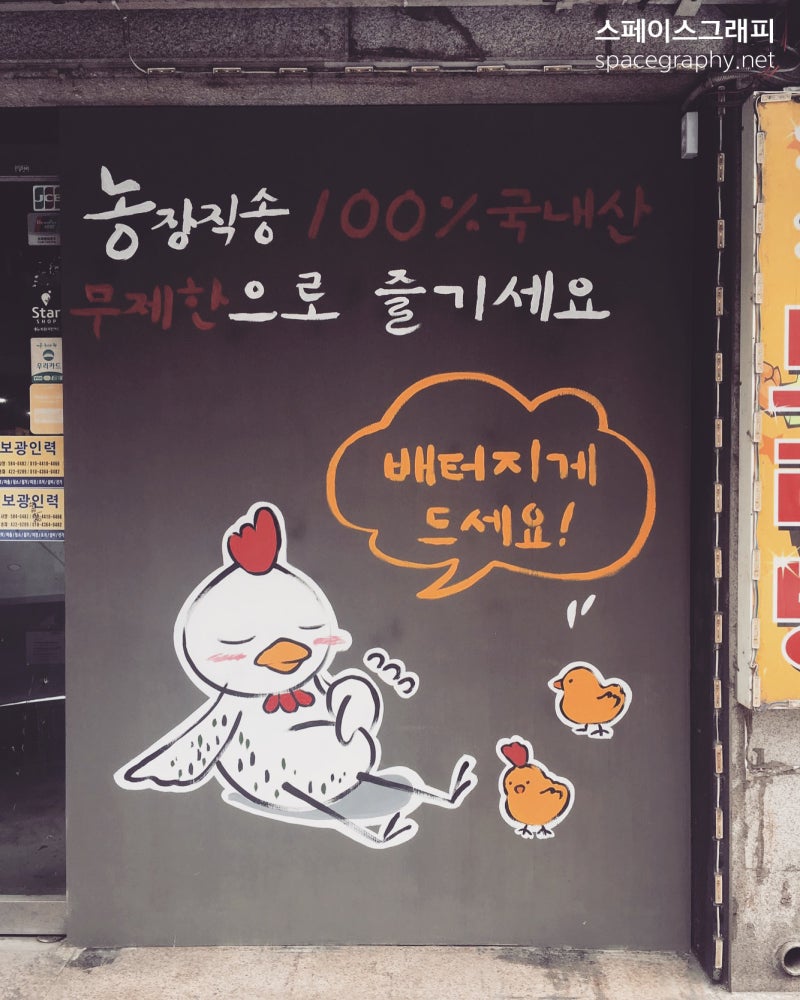 스페이스그래피
spacegraphy.net
농장직송 100% 국내산
무제한으로 즐기세요
배터지게
드세요!
JCB
Star
SHOP
우리카드
보광인력
보광인력